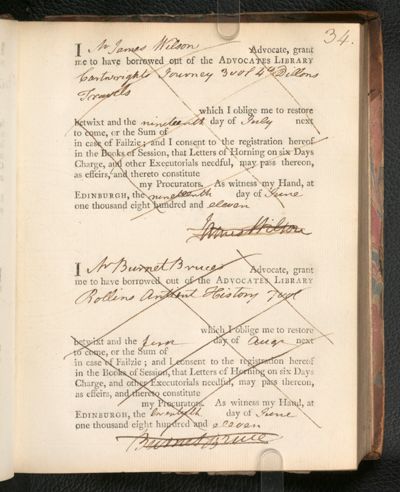 34.
I Mr James Wilson Advocate, grant
me to have borrowed out of the ADVOCATES LIBRARY
Cartwrights Journey 3 vol 4to Dillons
Travels
which I oblige me to restore
betwixt and the nineteenth day of July next
to come, or the Sum of
in case of Failzie; and I consent to the registration hereof
in the Books of Session, that Letters of Horning on six Days
Charge, and other Executorials needful, may pass thereon,
as effeirs, and thereto constitute
my Procurators. As witness my Hand, at
EDINBURGH, the nineteenth day of June
one thousand eight hundred and eleven
James Wilson
I Mr Burnet Bruce Advocate, grant
me to have borrowed out of the ADVOCATES LIBRARY
Rollins Antient History 7 vol
which I oblige me to restore
betwixt and the first day of Augt next
to come, or the Sum of
in case of Failzie; and I consent to the registration hereof
in the Books of Session, that Letters of Horning on six Days
Charge, and other Executorials needful, may pass thereon,
as effeirs, and thereto constitute
my Procurators. As witness my Hand, at
EDINBURGH, the twentieth day of June
one thousand eight hundred and eleven
Burnet Bruce